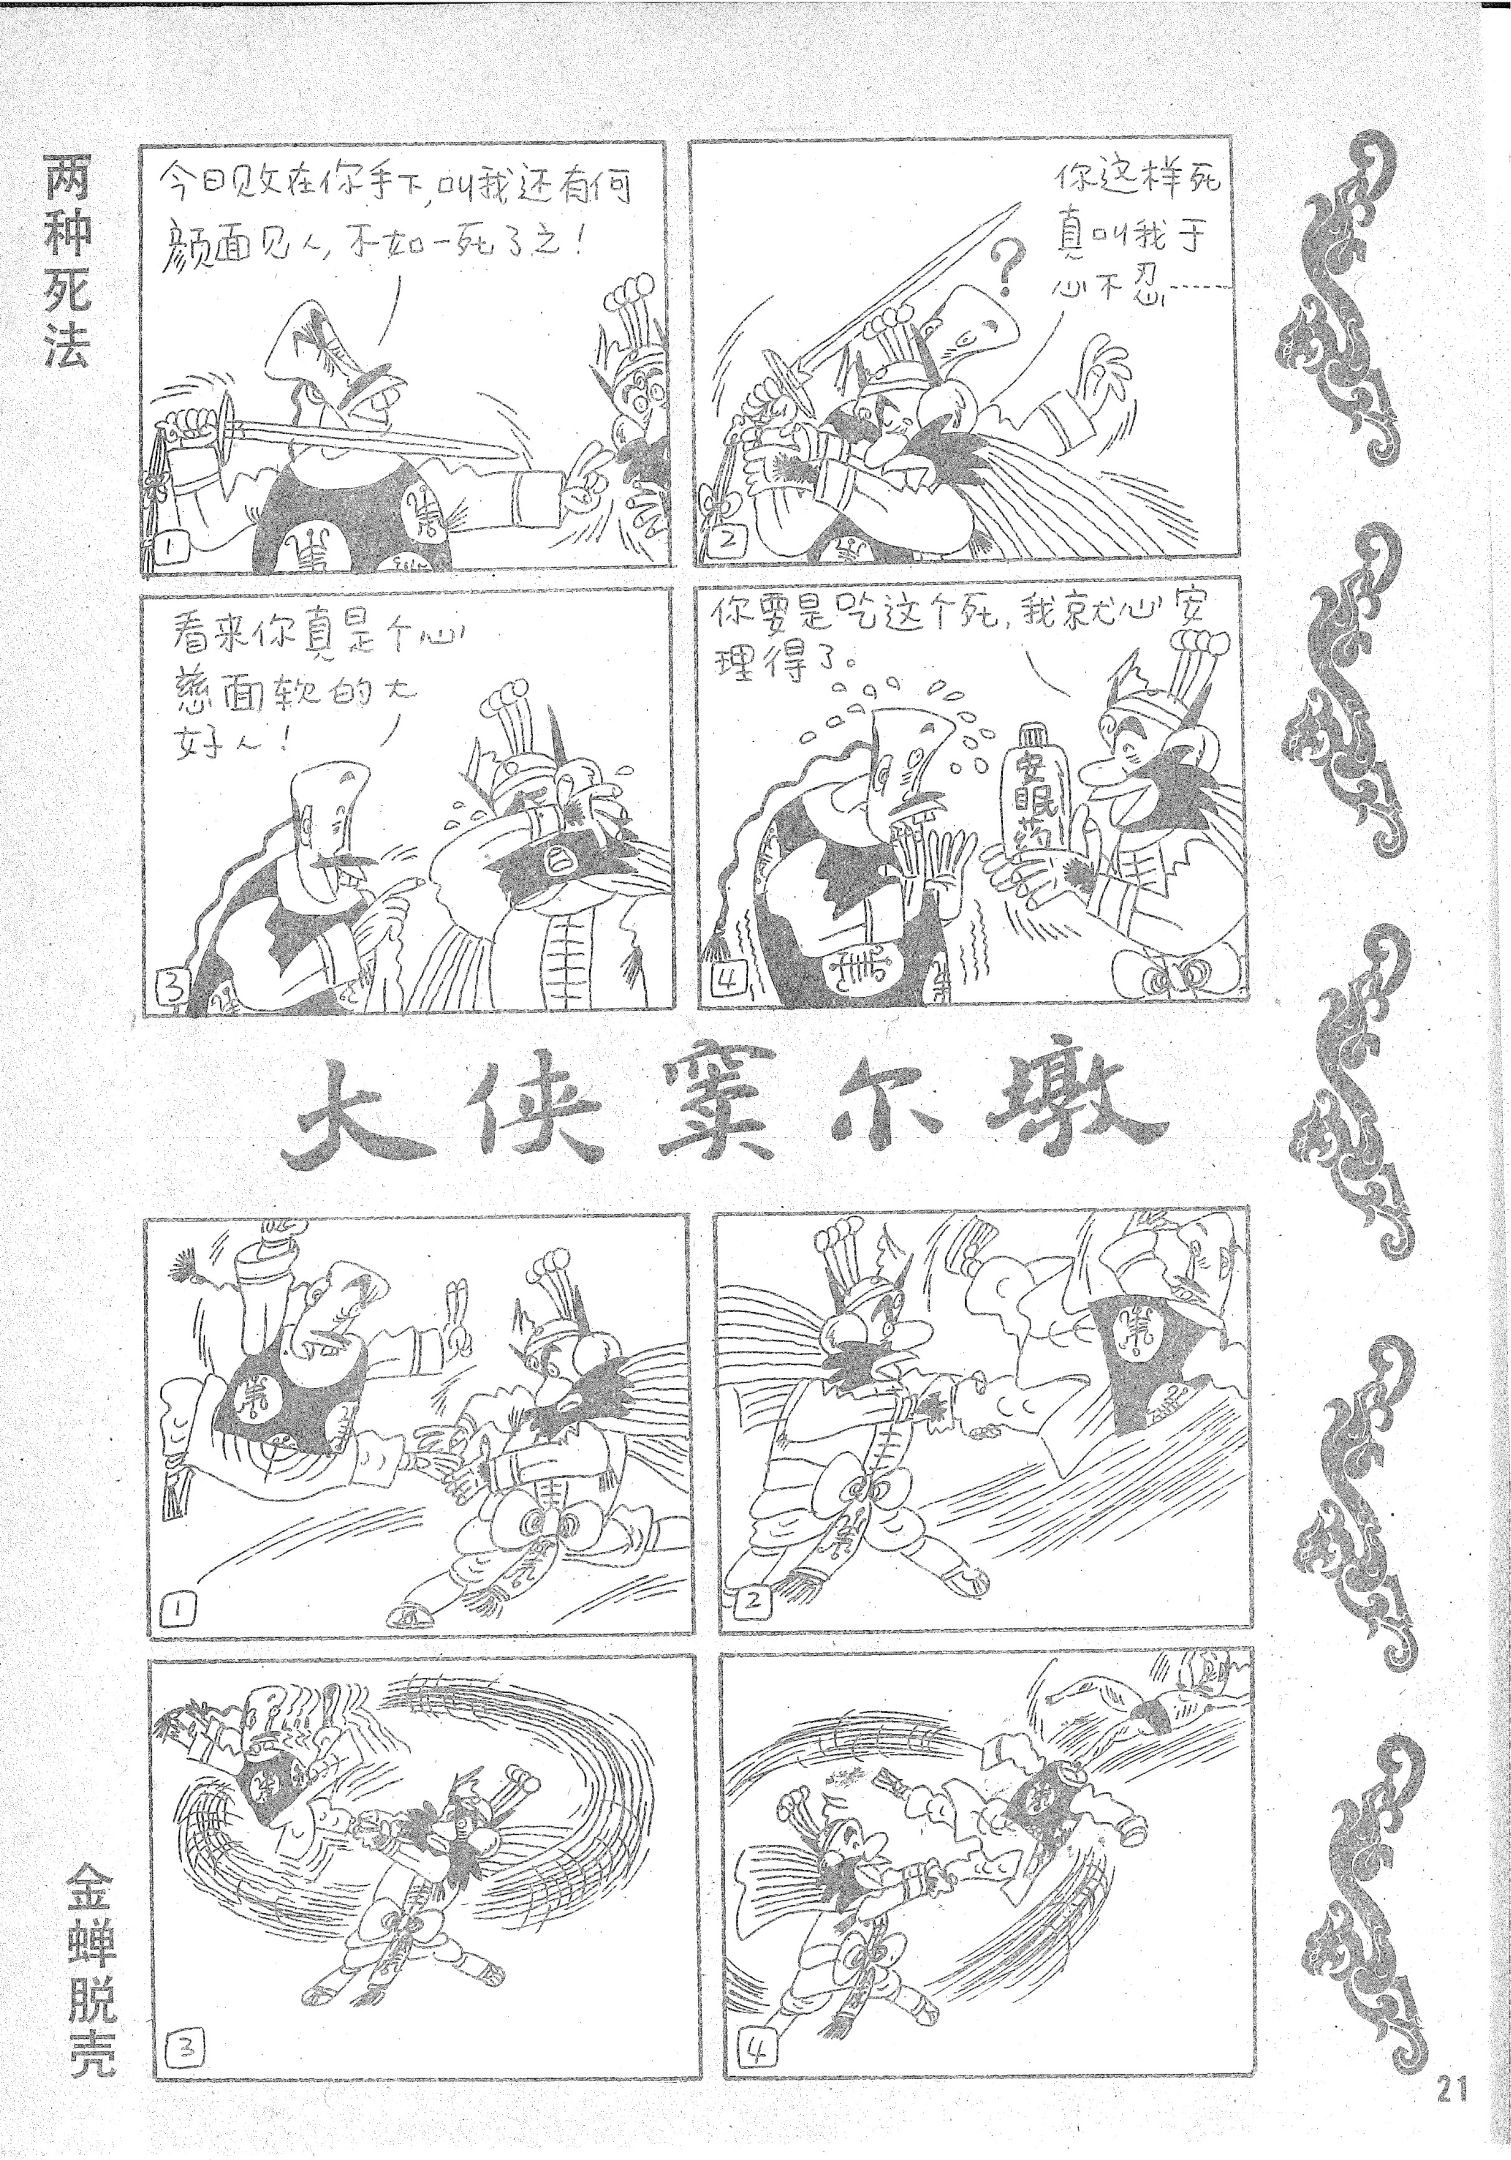 两种死法
今日败在你手下,叫我还有何
颜面见人,不如一死了之!
1
你这样死
真叫我于
心不忍……
?
2
看来你真是个心
慈面软的大
好人!
3
你要是吃这个死,我就心安
理得了。
安眠药
4
大侠窦尔墩
金蝉脱壳
1
2
3
4
21